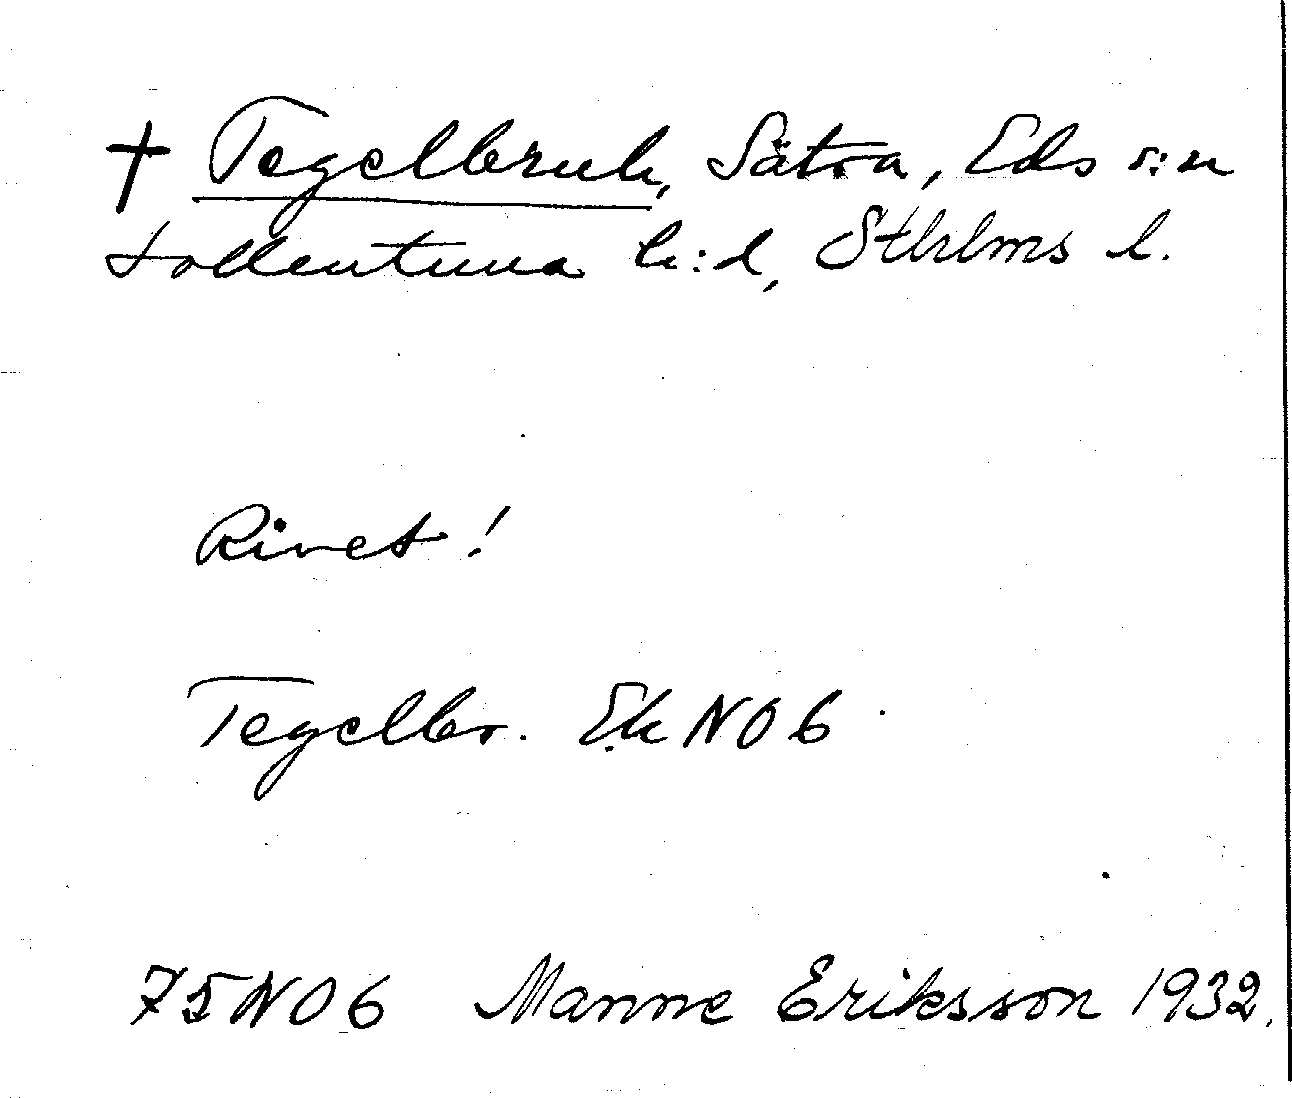 † Tegelbruk, Sätra, Eds s:n
Sollentuna h:d, Sthlms l.
Rivet!
Tegelbr. Ek NO6
75NO6 Manne Eriksson 1932.